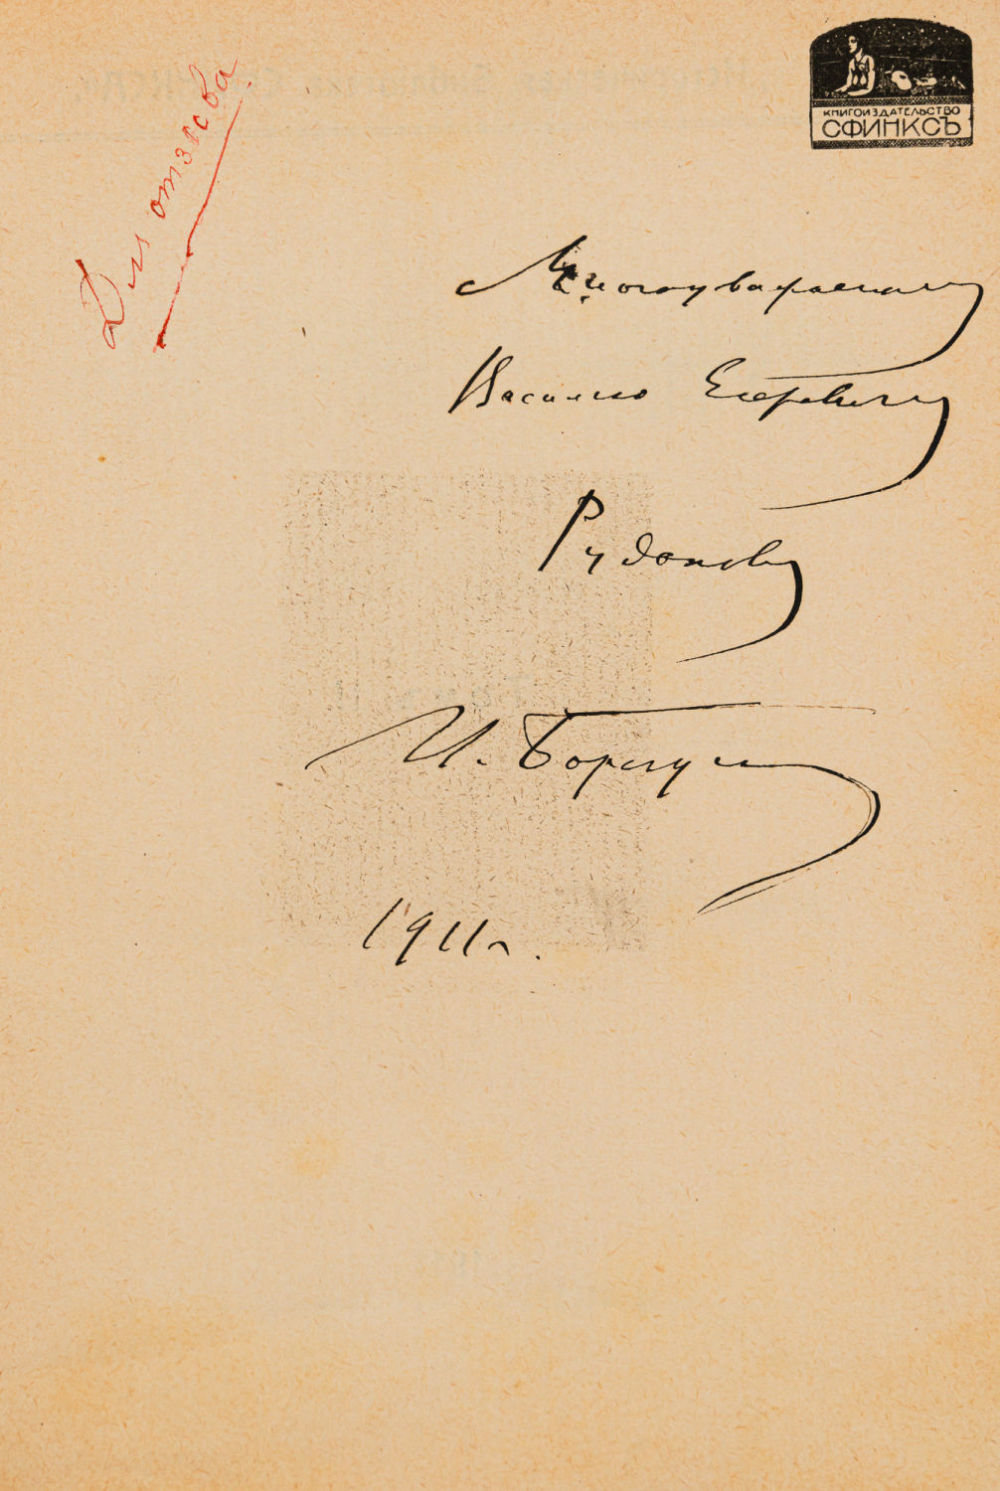 Для отзыва
КНИГОИЗДАТЕЛЬСТВО
СФИНКСЪ
Многоуважаемому
Василию Егоровичу
Рудакову
И.
1911 г.